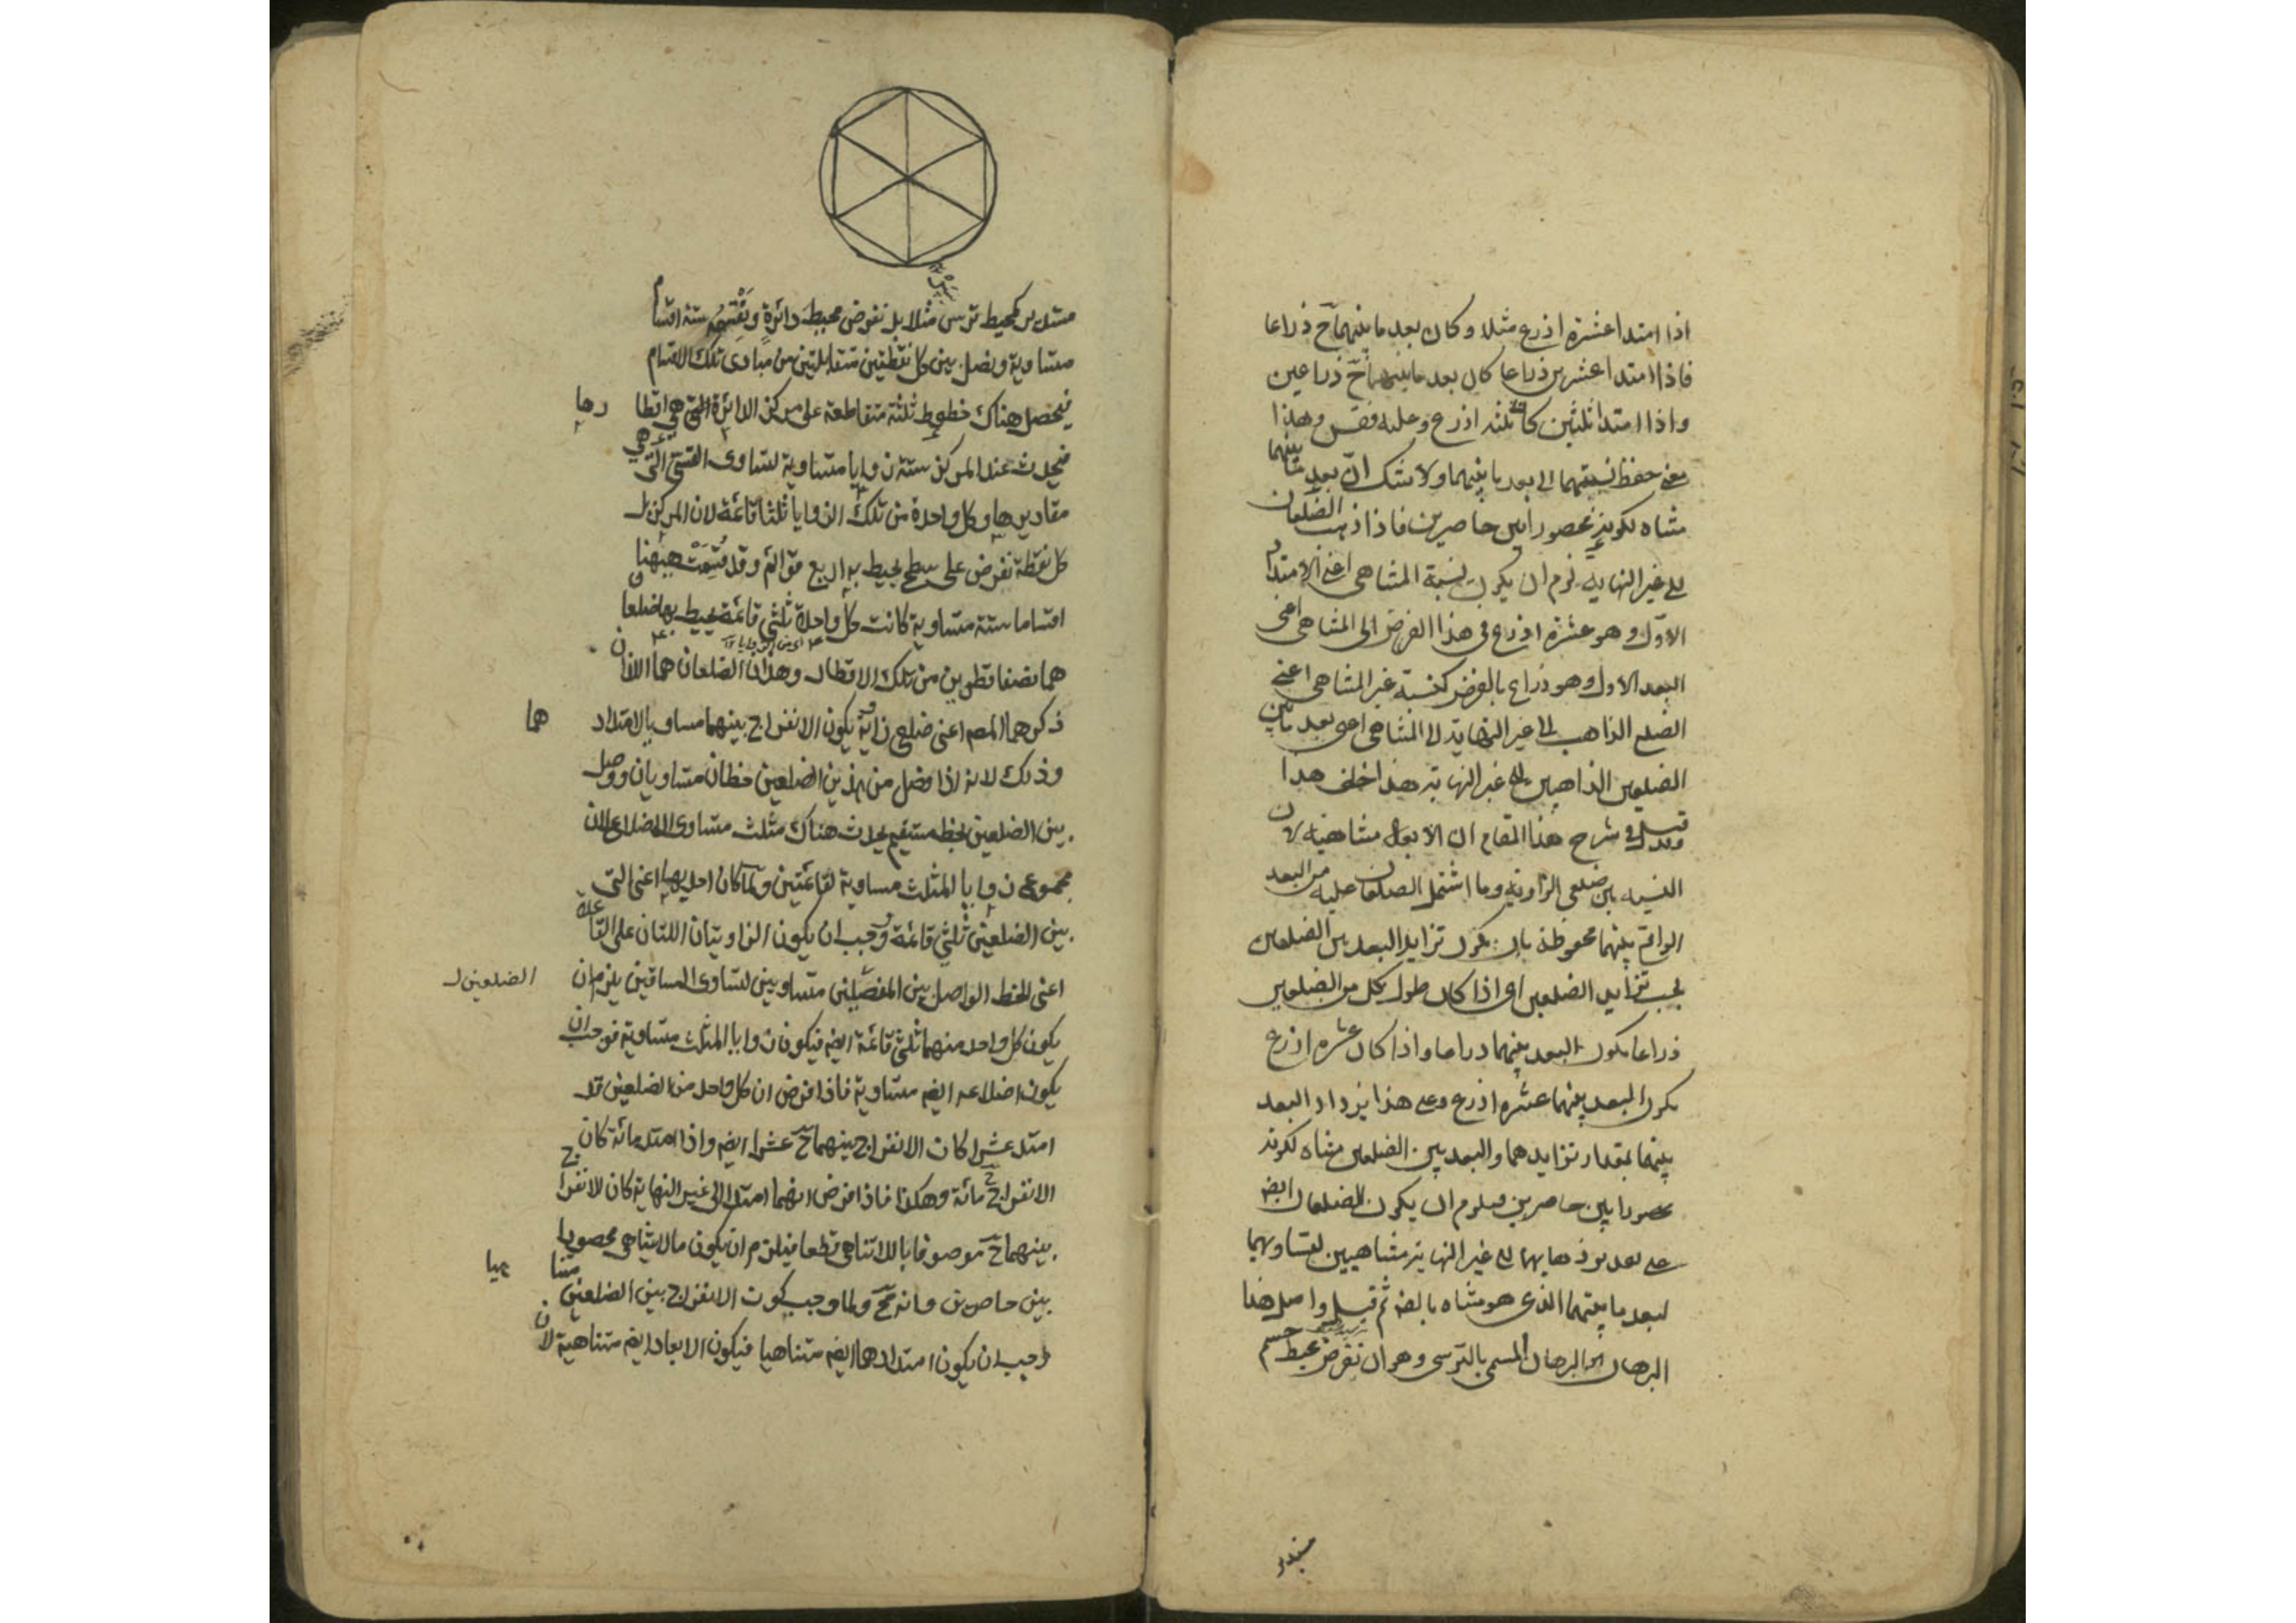 اذا امتدا عشرة اذرع مثلا وكان بعد ما بينهما ح ذراعا
فاذا امتدا عشرين ذراعا كان بعد ما بينهما ح ذراعين
واذا امتدا ثلثين كان ثلثة اذرع وعليه فقس وهذا
معنى حفظ نسبتهما الى بعد ما بينهما ولا شك ان بعد ما بينهما
متناه لكونه محصورا بين حاصرين فاذا ذهب الضلعان
الى غير النهاية لزم ان يكون نسبة المتناهى اعنى الامتداد
الاول وهو عشرة اذرع فى هذا الفرض الى المتناهى اعنى
البعد الاول وهو ذراع بالفرض كنسبة غير المتناهى اعنى
الضلع الذاهب الى غير النهاية الى المتناهى اعنى بعد ما بين
الضلعين الذاهبين الى غير النهاية هذا خلف هذا
وقيل فى شرح هذا المقام ان الابعاد متناهية لان
النسبة بين ضلعى الزاوية وما اشتمل الضلعان عليه من البعد
الواقع بينهما محفوظة بان يكون تزايد البعد بين الضلعين
بحسب تزايد الضلعين اى اذا كان طول كل من الضلعين
ذراعا يكون البعد بينهما ذراعا واذا كان عشرة اذرع
يكون البعد بينهما عشرة اذرع وعلى هذا يزداد البعد
بينهما بمقدار تزايدهما والبعد بين الضلعين متناه لكونه
محصورا بين حاصرين فيلزم ان يكون الضلعان ايضه
على بعد ذهابهما الى غير النهاية متناهيين لتساويهما
لبعد ما بينهما الذى هو متناه بالضرورة ثم قيل واصل هذا
البرهان البرهان المسمى بالترسى وهو ان نفرض محيط جسم
مستدير
مستدير كمحيط ترس مثلا بل نفرض محيط دائرة ونقسمه ستة اقسام
متساوية ونصل بين كل نقطتين متقابلتين من مبادى تلك الاقسام
فيحصل هناك خطوط ثلثة متقاطعة على مركز الدائرة التى هى اقطا رها
فيحدث عند المركز ستة زوايا متساوية لتساوى القسى التى هى
مقاديرها وكل واحدة من تلك الزوايا ثلثا قائمة لان المركز بل
كل نقطة نفرض على سطح يحيط به اربع قوائم وقد قسمت ههنا
اقساما ستة متساوية كانت كل واحدة ثلثى قائمة يحيط بها ضلعان
هما نصفا قطرين من تلك الاقطار وهذان الضلعان هما اللذان
ذكرهما المص اعنى ضلعى زاوية يكون الانفراج بينهما مساويا لامتداد هما
وذلك لانه اذا فصل من هذين الضلعين خطان متساويان ووصل
بين الضلعين بخط مستقيم يحدث هناك مثلث متساوى الاضلاع لان
مجموع زوايا المثلث مساوية لقائمتين ولما كان احديها اعنى التى
بين الضلعين ثلثى قائمة وجب ان يكون الزاويتان اللتان على القاعدة
اعنى الخط الواصل بين المفصلين متساويين لتساوى الساقين يلزم ان الضلعين
يكون كل واحد منهما ثلثى قائمة ايضه فيكون زوايا المثلث متساوية فوجب ان
يكون اضلاعه ايضه متساوية فاذا فرض ان كل واحد من الضلعين قد
امتد عشرا كان الانفراج بينهما ح عشرا ايضه واذا امتد مائة كان
الانفراج ح مائة وهكذا فاذا فرض انهما امتدا الى غير النهاية كان الانفراج
بينهما ح موصوفا باللاتناهى قطعا فيلزم ان يكون ما لا يتناهى محصورا
بين حاصرين وانه مح ولما وجب كون الانفراج بين الضلعين متنا هيا
وجب ان يكون امتدادهما ايضه متناهيا فيكون الابعاد ايضه متناهية لان